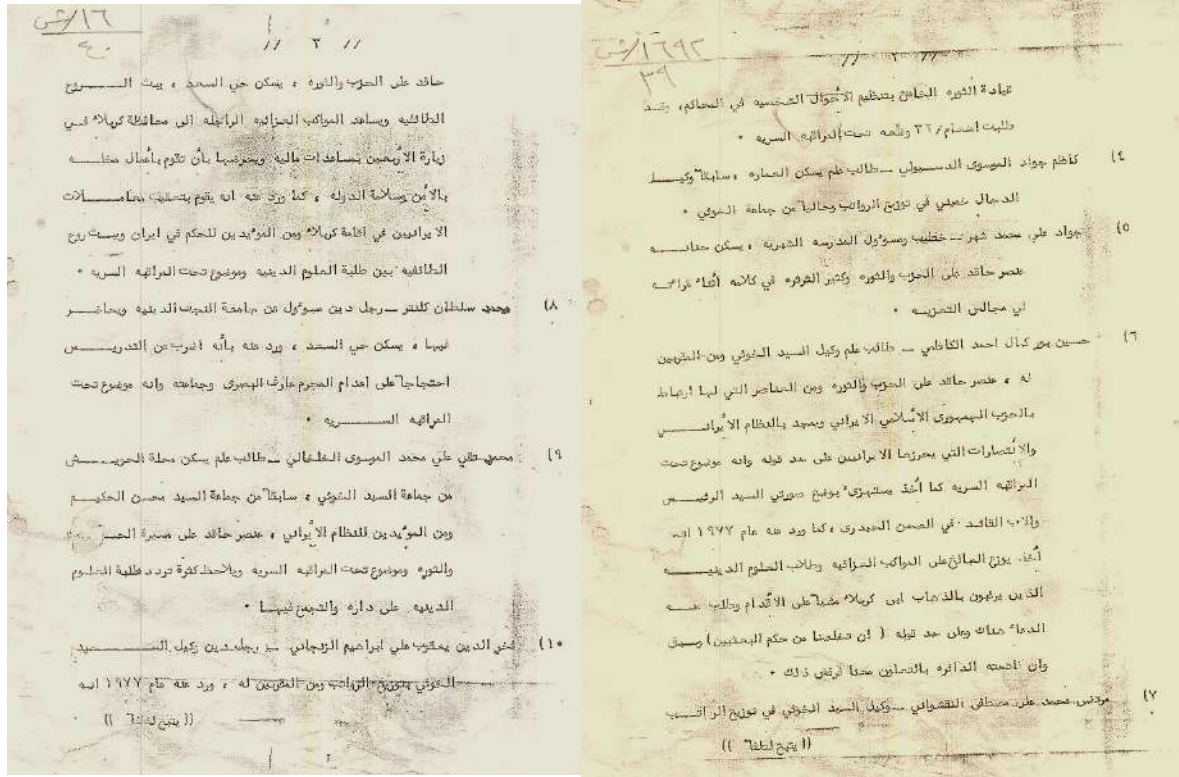 ١٦٩٢/ش
٣٩
// ٢ //
قيادة الثوره الخاص بتنظيم الأحوال الشخصيه في المحاكم، وقد
طلبت / ٣٢ وضعه تحت المراقبه السريه ٠
٤) كاظم جواد الموسوى الدسبولي ــ طالب علم يسكن العماره ، سابقاً وكيل
الدجال خميني في توزيع الرواتب وحالياً من جماعة الخوئي ٠
٥) جواد علي محمد شهر ــ خطيب ومسؤول المدرسه الشبريه ، يسكن حنانه
عنصر حاقد على الحزب والثوره وكثير الثرثره في كلامه أثناء قرائته
في مجالس التعزيه ٠
٦) حسين مير كمال احمد الكاظمي ــ طالب علم وكيل السيد الخوئي ومن المقربين
له ، عنصر حاقد على الحزب والثوره ومن العناصر التي لها ارتباط
بالحزب الجمهورى الاسلامي الايراني ويمجد بالنظام الايراني
والانتصارات التي يحرزها الايرانيين على حد قوله وانه موضوع تحت
المراقبه السريه كما أخذ يستهزئ بوضع صورتي السيد الرئيس
والأب القائد في الصحن الحيدرى ، كما ورد عنه عام ١٩٧٧ انه
أخذ يوزع المبالغ على المواكب العزائيه وطلاب العلوم الدينيه
الذين يرغبون بالذهاب الى كربلاء مشياً على الاقدام وطلب منه
الدعاء هناك وعلى حد قوله ( أن تخلصنا من حكم البعثيين ) وسبق
وان فاتحته الدائره بالتعاون معنا فرفض ذلك ٠
٧) مرتضى محمد علي مصطفى النقشواني ــ وكيل السيد الخوئي في توزيع الرواتب
(( يتبع لطفاً ))
١٦/ش
٤٠
// ٣ //
حاقد على الحزب والثوره ، يسكن حي السعد ، يبث الروح
الطائفيه ويساعد المواكب العزائيه الراجله الى محافظة كربلاء في
زيارة الأربعين بمساعدات ماليه ويحرضها بأن تقوم بأعمال مخله
بالأمن وسلامة الدوله ، كما ورد عنه انه يقوم بتمشية معاملات
الايرانيين في اقامة كربلاء ومن المؤيدين للحكم في ايران ويبث روح
الطائفيه بين طلبة العلوم الدينيه وموضوع تحت المراقبه السريه ٠
٨) محمد سلطان كلنتر ــ رجل دين مسؤول عن جامعة النجف الدينيه ويحاضر
فيها ، يسكن حي السعد ، ورد عنه بأنه اضرب عن التدريس
احتجاجاً على اعدام المجرم عارف البصرى وجماعته وانه موضوع تحت
المراقبه السريه ٠
٩) محمد تقي علي محمد الموسوى الخلخالي ــ طالب علم يسكن محلة الحويش
من جماعة السيد الخوئي ، سابقاً من جماعة السيد محسن الحكيم
ومن المؤيدين للنظام الايراني ، عنصر حاقد على مسيرة الحزب
والثوره وموضوع تحت المراقبه السريه ويلاحظ كثرة تردد طلبة العلوم
الدينيه على داره والتجمع فيها ٠
١٠) فخر الدين يعقوب علي ابراهيم الزنجاني ــ رجل دين وكيل السيد
الخوئي بتوزيع الرواتب ومن المقربين له ، ورد عنه عام ١٩٧٧ انه
(( يتبع لطفاً ))